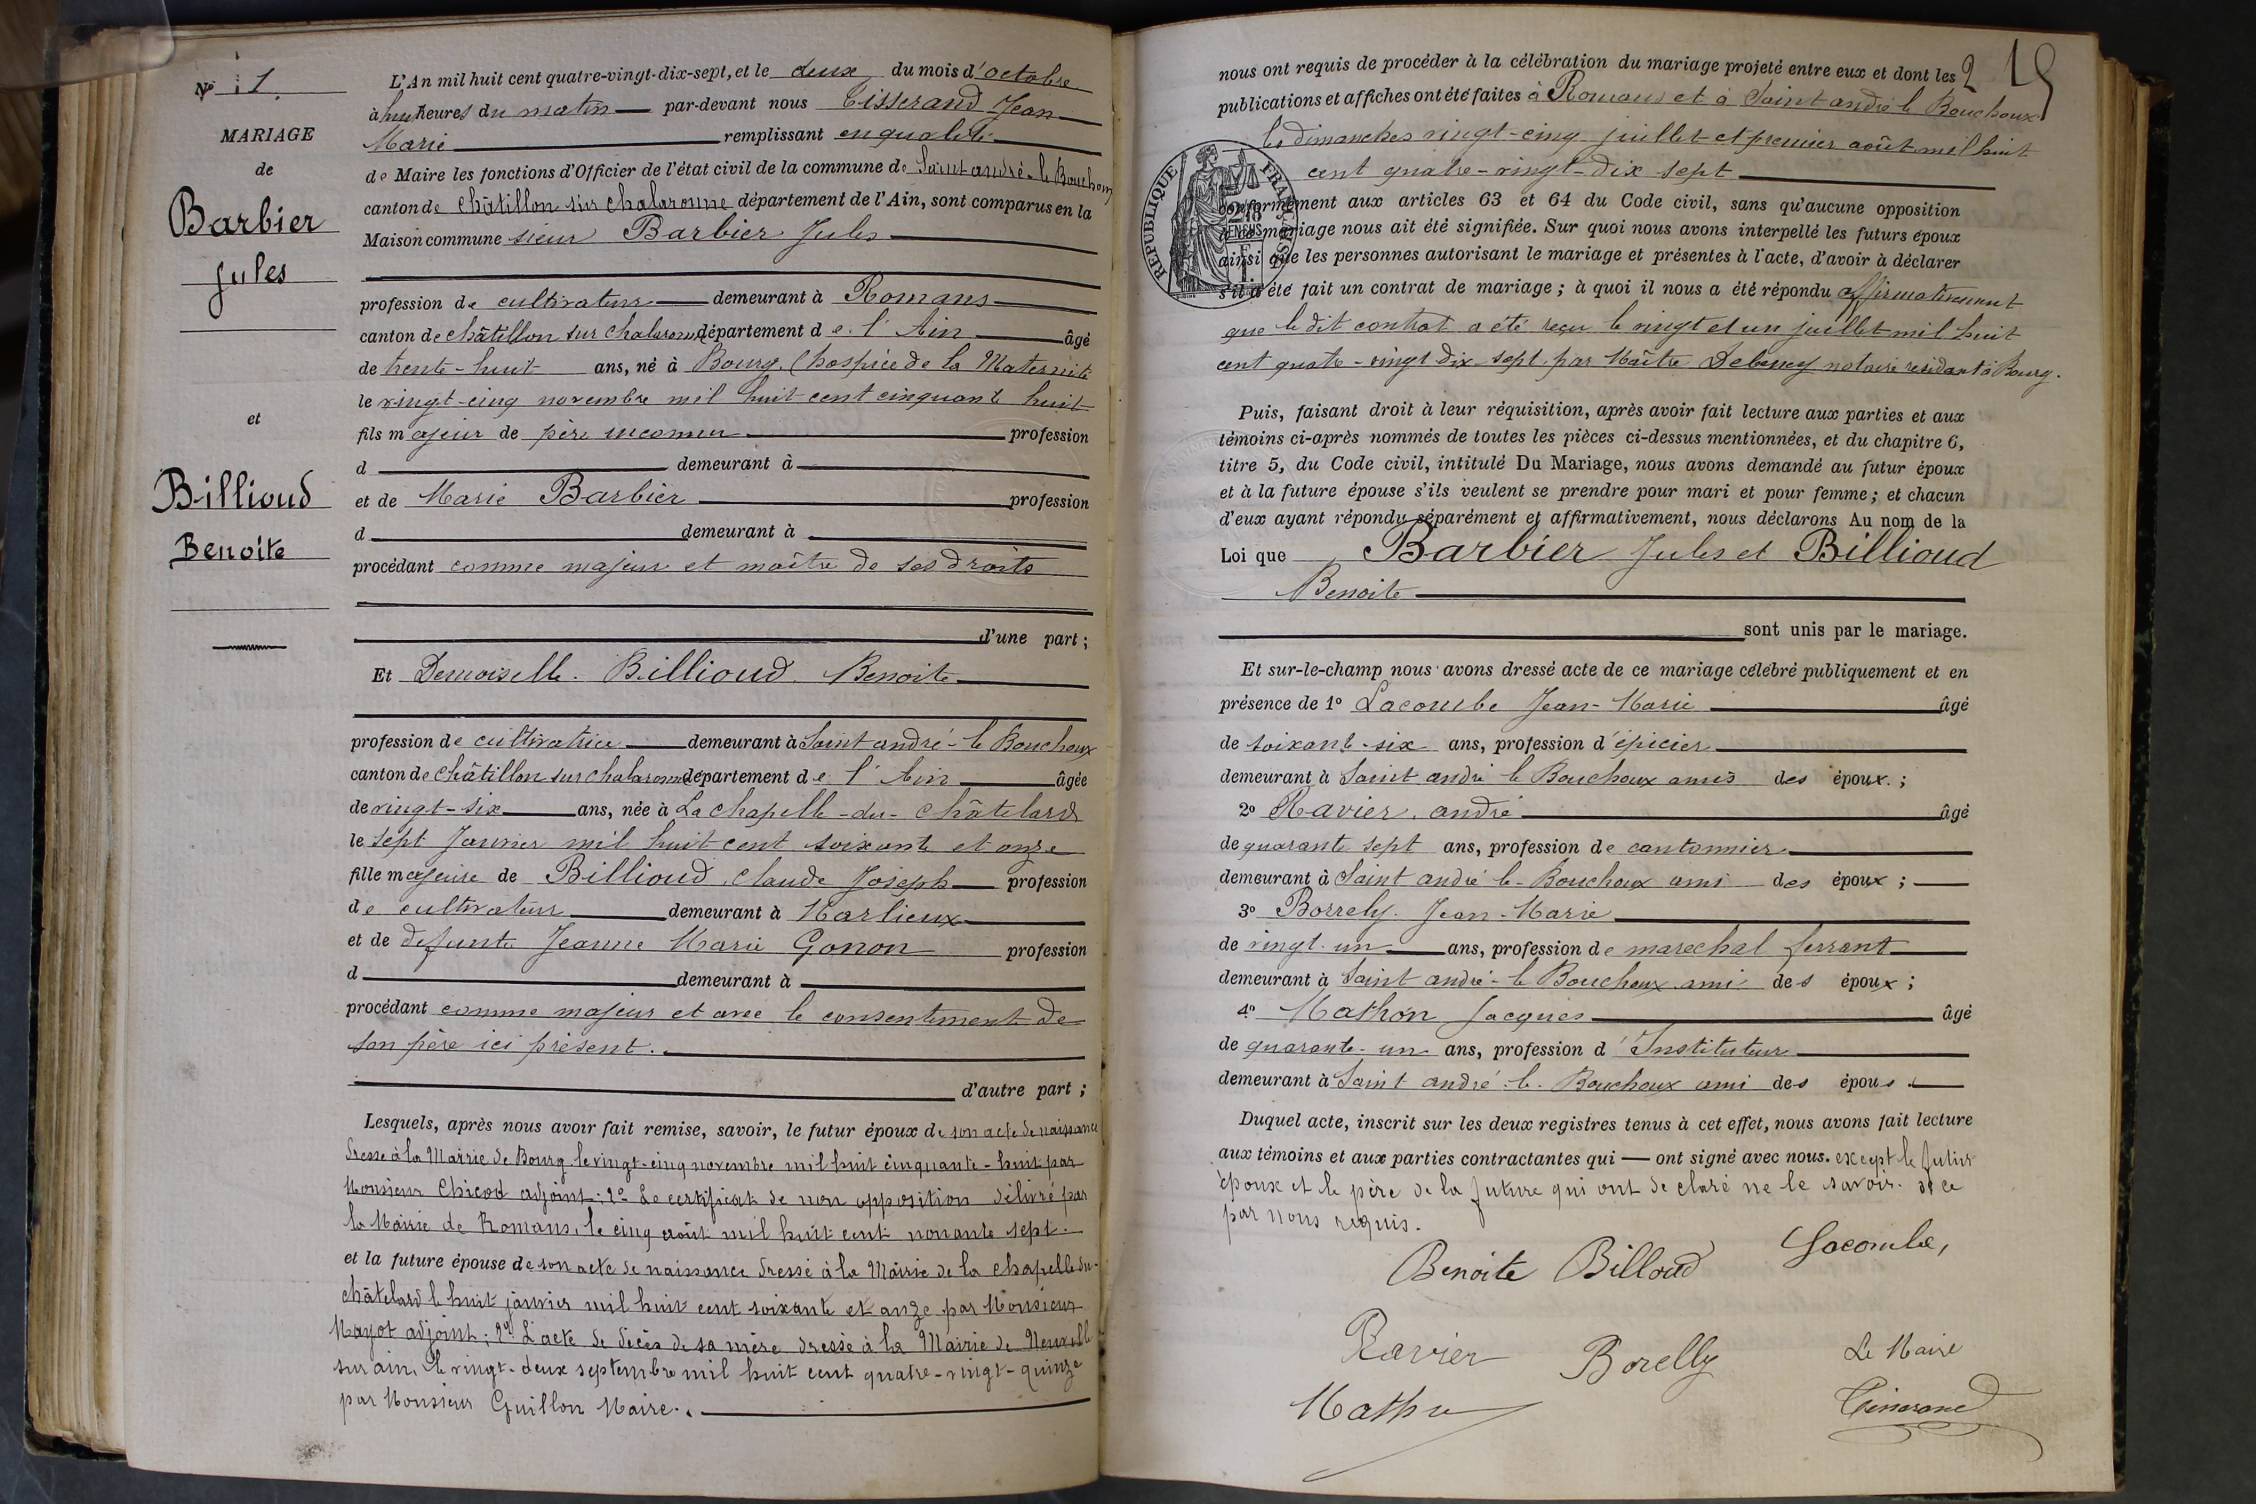 N° 1.
MARIAGE
de
Barbier
Jules
et
Billioud
Benoite
L'An mil huit cent quatre-vingt-dix-sept, et le deux du mois d'octobre
à huit heures du matin par-devant nous Tisserand Jean
Marie remplissant en qualité
de Maire les fonctions d'Officier de l'état civil de la commune de Saint andré-le Bouchoux
canton de Châtillon sur chalaronne département de l'Ain, sont comparus en la
Maison commune sieur Barbier Jules
profession de cultivateur demeurant à Romans
canton de châtillon sur chalaronne département de l'Ain âgé
de trente-huit ans, né à Bourg, (hospice de la Maternité
le vingt-cinq novembre mil huit cent cinquante huit
fils majeur de père inconnu profession
d demeurant à
et de Marie Barbier profession
d demeurant à
procédant comme majeur et maître de ses droits
d'une part ;
Et Demoiselle. Billioud. Benoite
profession de cultivatrice demeurant à Saint andré-le Bouchoux
canton de châtillon sur chalaronne département de l'Ain âgée
de vingt-six ans, née à La chapelle-du-châtelard
le sept Janvier mil huit cent soixante et onze
fille majeure de Billioud, Claude Joseph profession
de cultivateur demeurant à Marlieux
et de defunte Jeanne Marie Gonon profession
d demeurant à
procédant comme majeur et avec le consentement de
son père ici présent.
d'autre part ;
Lesquels, après nous avoir fait remise, savoir, le futur époux de son acte de naissance
dressé à la Mairie de Bourg le vingt-cinq novembre mil huit cinquante-huit par
Monsieur Chicod adjoint; 2° Le certificat de non opposition délivré par
la Mairie de Romans, le cinq août mil huit cent nonante sept.
et la future épouse de son acte de naissance dressé à la Mairie de la chapelle du-
châtelard le huit janvier mil huit cent soixante et onze par Monsieur
Mayot adjoint; 2° L'acte de décès de sa mère dressé à la Mairie de Neuville
sur ain, le vingt-deux septembre mil huit cent quatre-vingt-quinze
par Monsieur Guillon Maire.
2 15
nous ont requis de procéder à la célébration du mariage projeté entre eux et dont les
publications et affiches ont été faites à Romans et à Saint andré le Bouchoux
les dimanches vingt-cinq juillet et premier août mil huit
cent quatre-vingt-dix sept
RÉPUBLIQUE FRANÇAISE
conformément aux articles 63 et 64 du Code civil, sans qu'aucune opposition
à ce mariage nous ait été signifiée. Sur quoi nous avons interpellé les futurs époux
ainsi que les personnes autorisant le mariage et présentes à l'acte, d'avoir à déclarer
s'il a été fait un contrat de mariage ; à quoi il nous a été répondu affirmativement
que le dit contrat a été reçu le vingt et un juillet mil huit
cent quatre-vingt dix-sept par Maître Debeney notaire résidant à Bourg.
Puis, faisant droit à leur réquisition, après avoir fait lecture aux parties et aux
témoins ci-après nommés de toutes les pièces ci-dessus mentionnées, et du chapitre 6,
titre 5, du Code civil, intitulé Du Mariage, nous avons demandé au futur époux
et à la future épouse s'ils veulent se prendre pour mari et pour femme ; et chacun
d'eux ayant répondu séparément et affirmativement, nous déclarons Au nom de la
Loi que Barbier Jules et Billioud
Benoite
sont unis par le mariage.
Et sur-le-champ nous avons dressé acte de ce mariage célébré publiquement et en
présence de 1° Lacombe Jean-Marie âgé
de soixante-six ans, profession d'épicier
demeurant à Saint andré le Bouchoux amis des époux. ;
2° Ravier, andré âgé
de quarante sept ans, profession de cantonnier
demeurant à Saint andré le-Bouchoux ami des époux ;
3° Borrely. Jean-Marie
de vingt-un ans, profession de marechal ferrant
demeurant à Saint andré-le Bouchoux ami des époux ;
4° Mathon Jacques âgé
de quarante-un ans, profession d'Instituteur
demeurant à Saint andré-le-Bouchoux ami des épous
Duquel acte, inscrit sur les deux registres tenus à cet effet, nous avons fait lecture
aux témoins et aux parties contractantes qui — ont signé avec nous. except le futur
époux et le père de la future qui ont declaré ne le savoir. de ce
par nous requis.
Benoite Billoud Lacombe,
Ravier Borelly Le Maire
Matho Tisserand